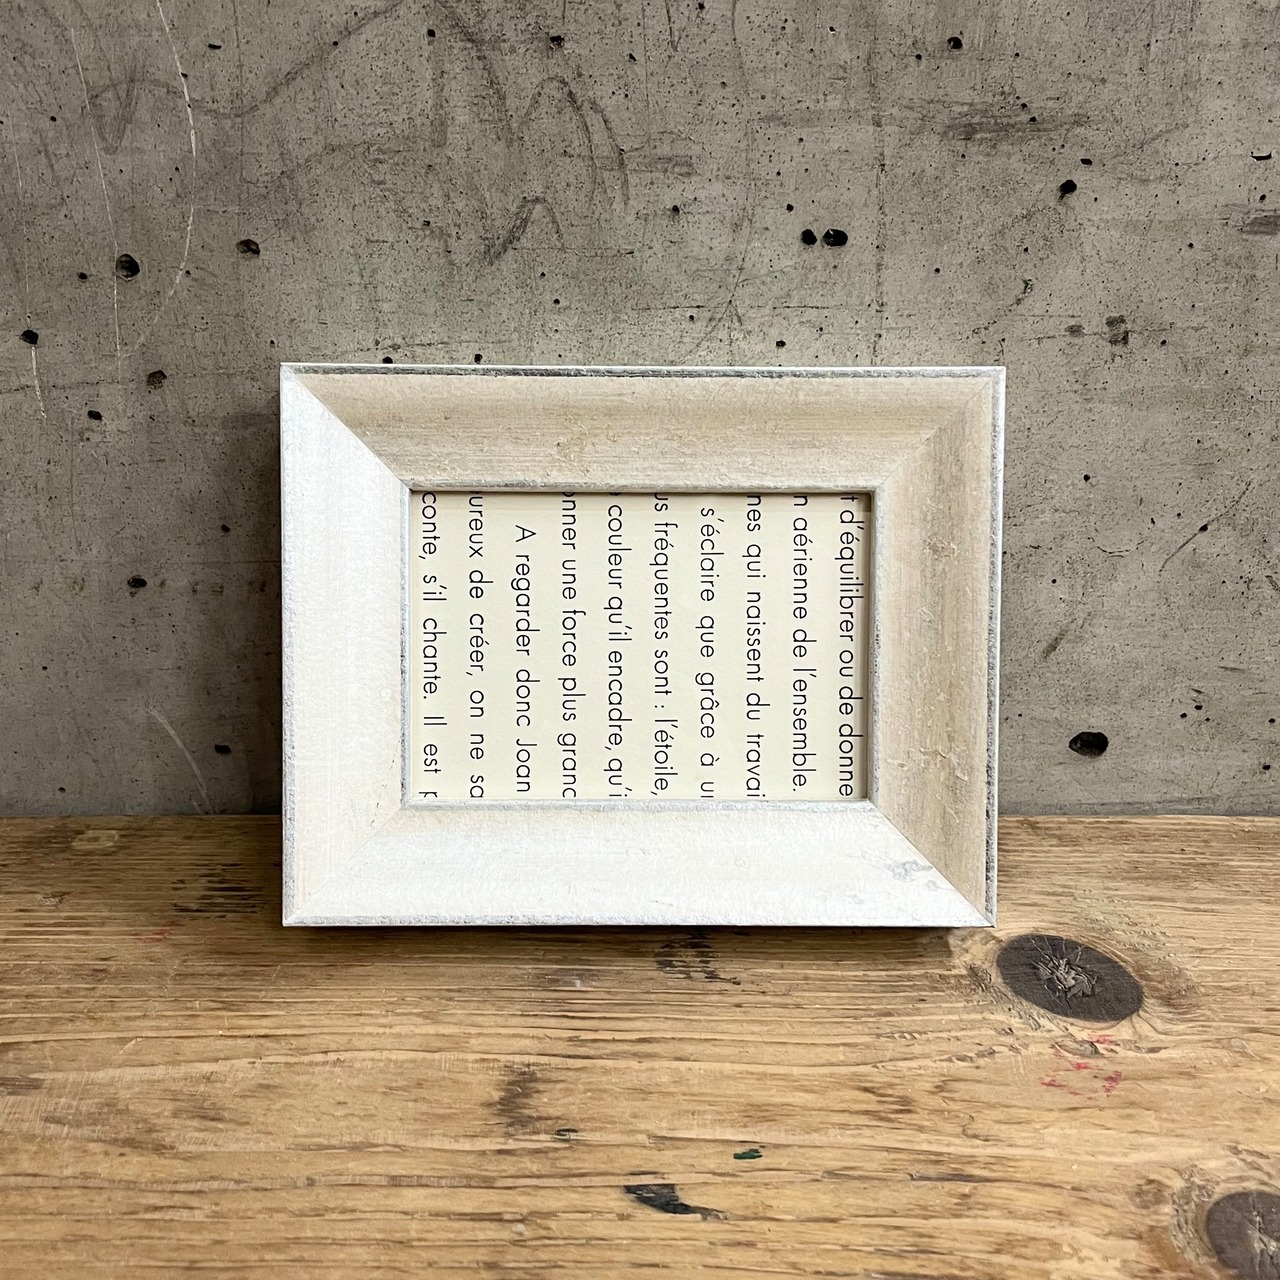 t d'équilibrer ou de donne
n aérienne de l'ensemble.
nes qui naissent du travai
s'éclaire que grâce à u
us fréquentes sont : l'étoile,
couleur qu'il encadre, qu'i
onner une force plus gran
A regarder donc Joan
ureux de créer, on ne sa
conte, s'il chante. Il est p